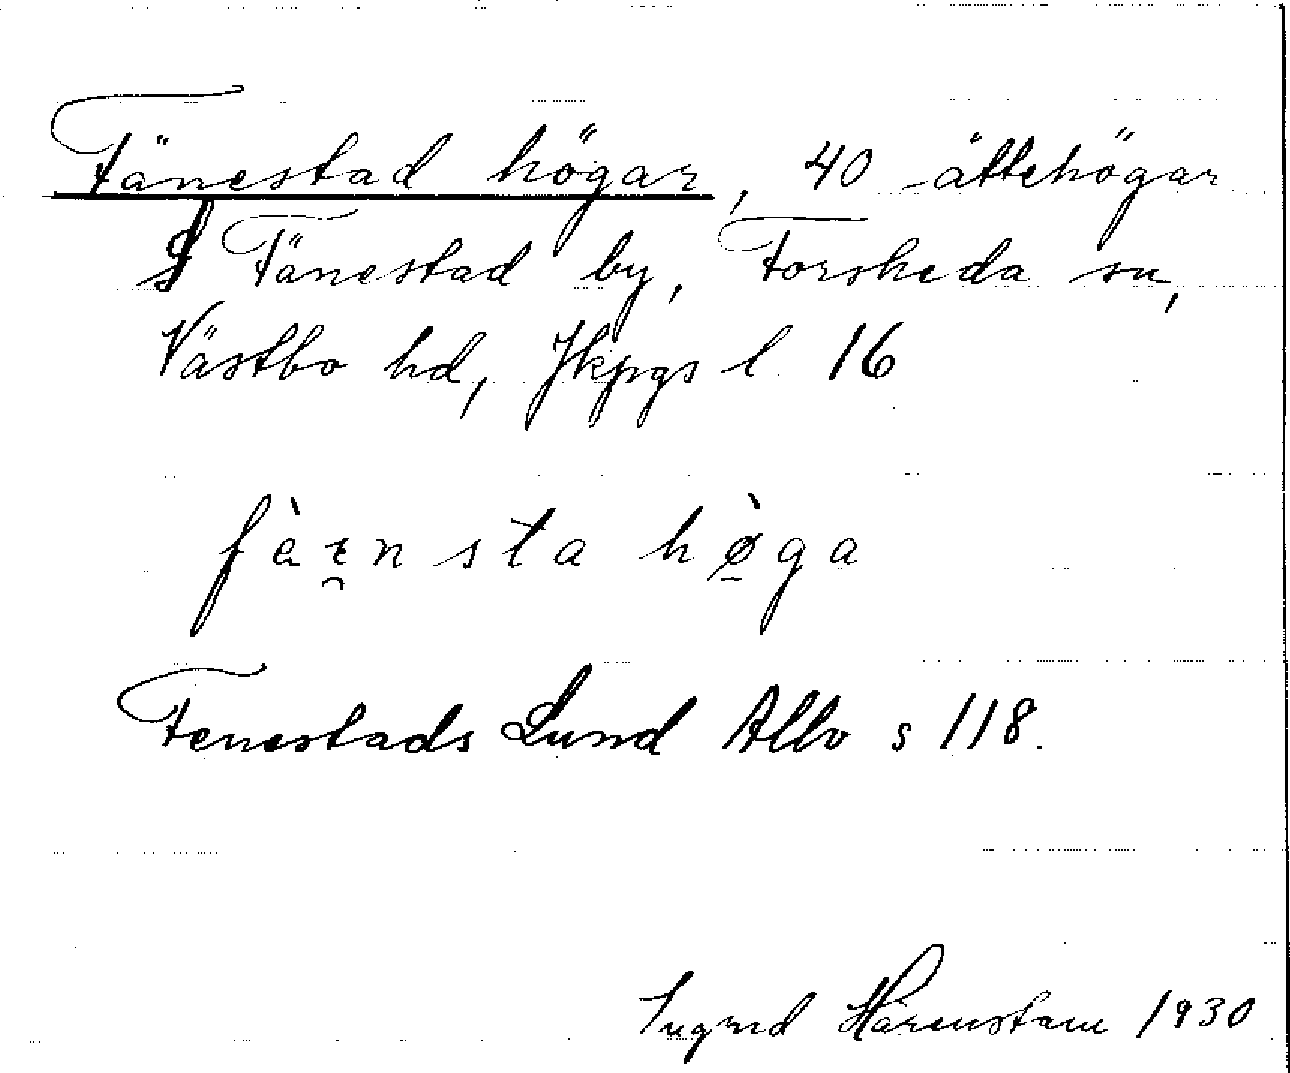 Fänestad högar, 40 ättehögar
S Fänestad by, Forsheda sn,
Västbo hd, Jkpgs l 16
fàɛ̯nsta hø̀ga
Fenestads Lund Allvo s 118.
Ingrid Härenstam 1930